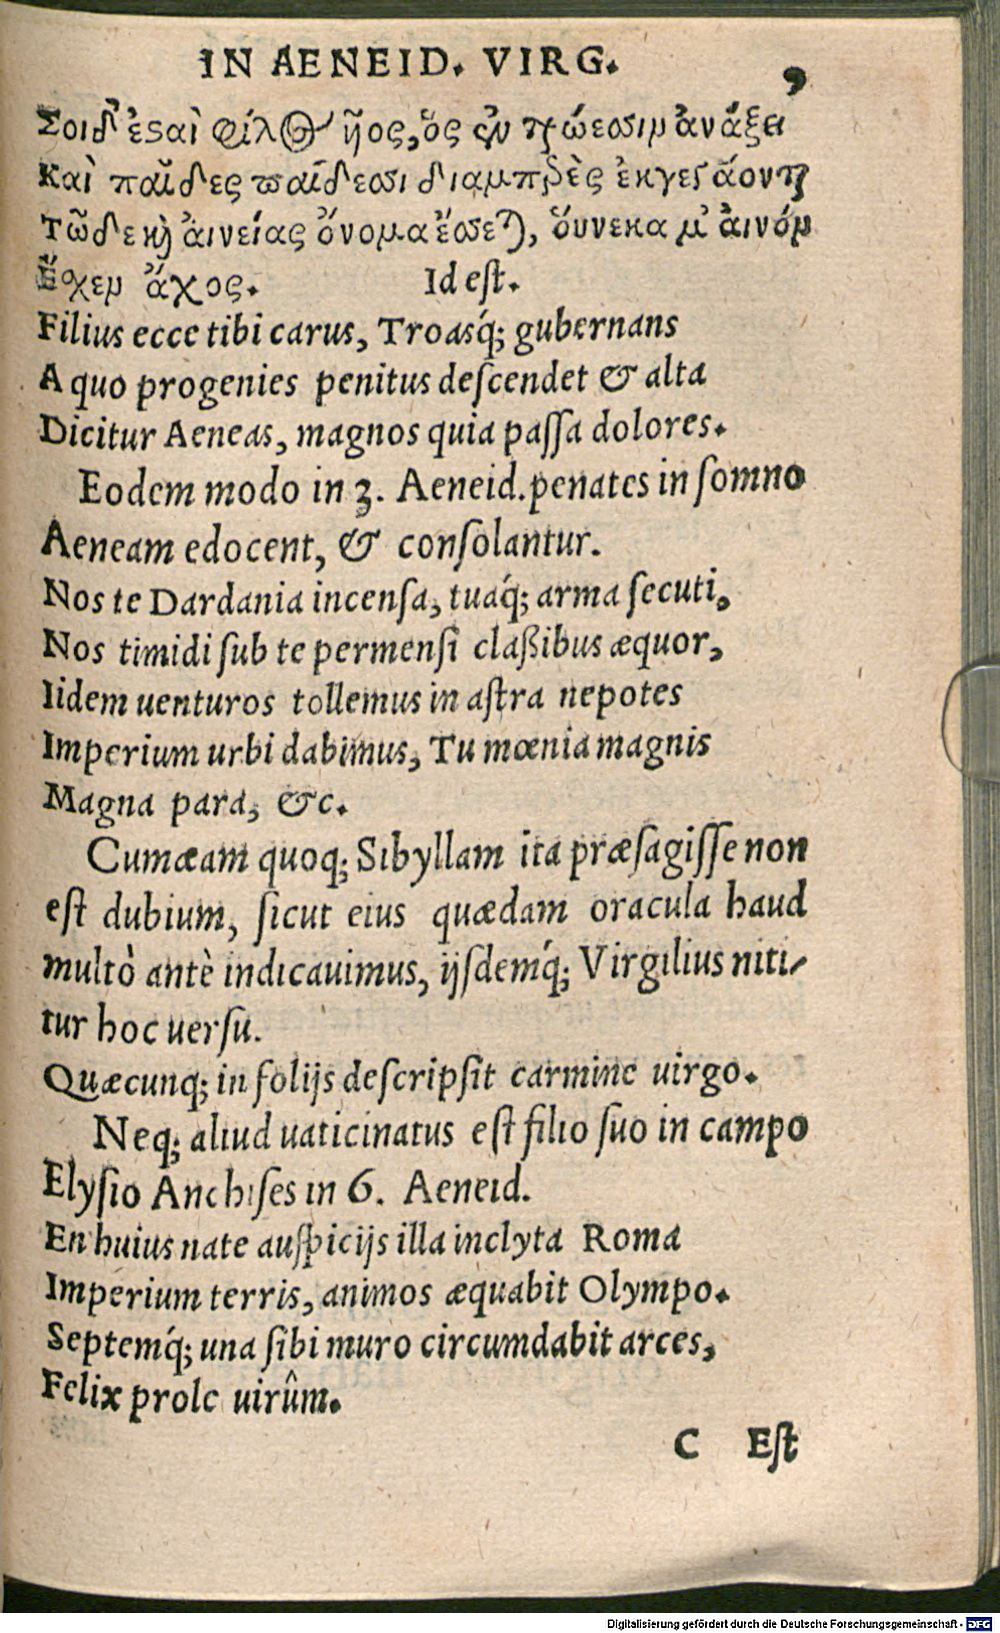 IN AENEID. VIRG. 9
Σοι δ' ἔσαὶ φίλος ἧος, ὃς ἐν τρώεσσιμ ἀνάξει
Καὶ παῖδες παίδεσσι διαμπρὲς ἐκγεγάοντ
Τῶ δε καὶ ἀινείας ὄνομα ἔσσετ), ὅυνεκα μ' ἀινόμ
Ἔχεμ ἄχος. Id est.
Filius ecce tibi carus, Troasq́; gubernans
A quo progenies penitus deſcendet & alta
Dicitur Aeneas, magnos quia paſſa dolores.
Eodem modo in 3. Aeneid. penates in ſomno
Aeneam edocent, & conſolantur.
Nos te Dardania incenſa, tuaq́; arma ſecuti,
Nos timidi ſub te permenſi claßibus æquor,
Iidem uenturos tollemus in aſtra nepotes
Imperium urbi dabimus, Tu mœnia magnis
Magna para, &c.
Cumæam quoq; Sibyllam ita præſagiſſe non
eſt dubium, ſicut eius quædam oracula haud
multò antè indicauimus, ijſdemq́; Virgilius niti-
tur hoc uerſu.
Quæcunq; in folijs deſcripſit carmine virgo.
Neq; aliud uaticinatus eſt filio ſuo in campo
Elyſio Anchiſes in 6. Aeneid.
En huius nate auſpicijs illa inclyta Roma
Imperium terris, animos æquabit Olympo.
Septemq́; una ſibi muro circumdabit arces,
Felix prole uirûm.
C Eſt
Digitalisierung gefördert durch die Deutsche Forschungsgemeinschaft - DFG